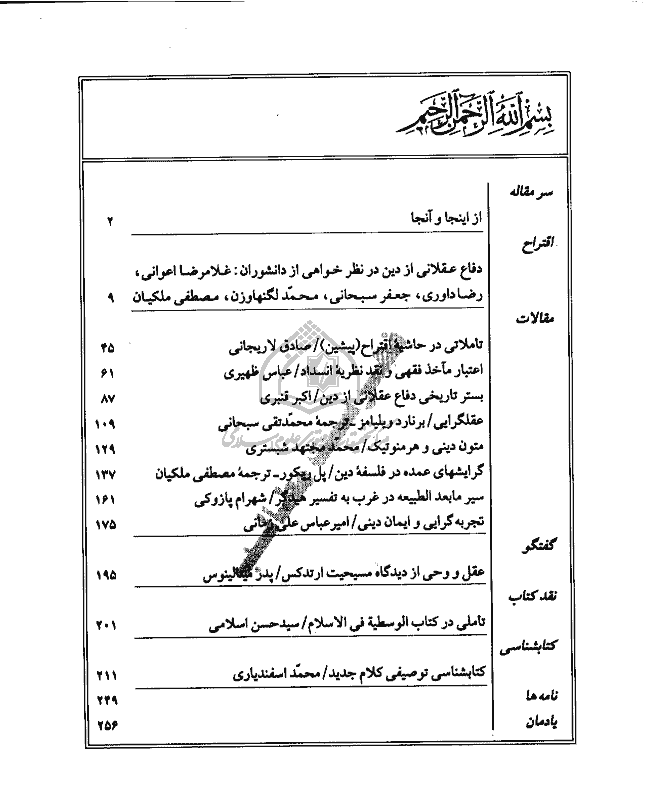 بِسْمِ اللهِ الرَّحْمنِ الرَّحِيمِ
سر مقاله
از اینجا و آنجا ۲
اقتراح
دفاع عقلانی از دین در نظر خواهی از دانشوران: غلامرضا اعوانی،
رضا داوری، جعفر سبحانی، محمّد لگنهاوزن، مصطفی ملکیان ۹
مقالات
تاملاتی در حاشیهٔ اقتراح(پیشین)/ صادق لاریجانی ۴۵
اعتبار مآخذ فقهی و نقد نظریهٔ انسداد/ عباس ظهیری ۶۱
بستر تاریخی دفاع عقلانی از دین/ اکبر قنبری ۸۷
عقلگرایی/ برنارد ویلیامز ـ ترجمهٔ محمّدتقی سبحانی ۱۰۹
متون دینی و هرمنوتیک/ محمّد مجتهد شبستری ۱۲۹
گرایشهای عمده در فلسفهٔ دین/ پل ریکور ـ ترجمهٔ مصطفی ملکیان ۱۳۷
سیر مابعد الطبیعه در غرب به تفسیر هیدگر/ شهرام پازوکی ۱۶۱
تجربه گرایی و ایمان دینی/ امیرعباس علی زمانی ۱۷۵
گفتگو
عقل و وحی از دیدگاه مسیحیت ارتدکس/ پدر ۱۹۵
نقد کتاب
تاملی در کتاب الوسطیة فی الاسلام/ سیدحسن اسلامی ۲۰۱
کتابشناسی
کتابشناسی توصیفی کلام جدید/ محمّد اسفندیاری ۲۱۱
نامه ها ۲۴۹
یادمان ۲۵۶